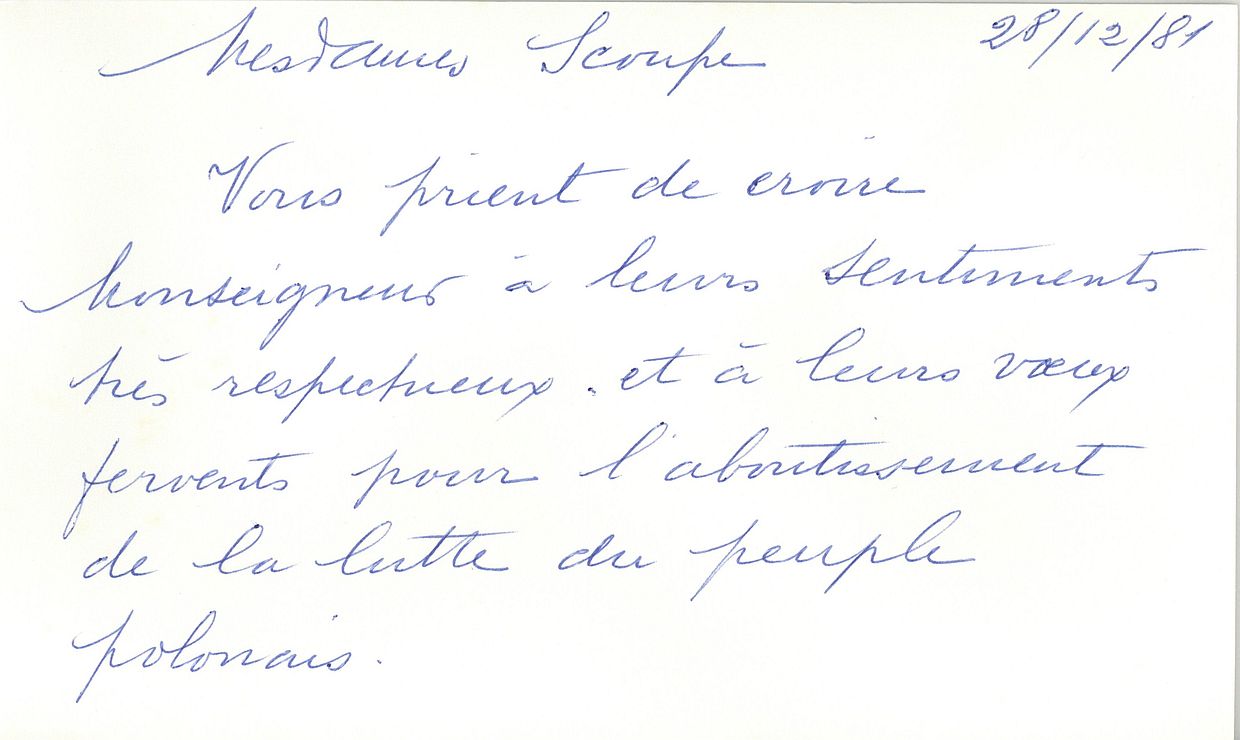 Mesdames Scoupe 28/12/81
Vous prient de croire
Monseigneur à leurs sentiments
très respectueux. et à leurs vœux
fervents pour l'aboutissement
de la lutte du peuple
polonais.